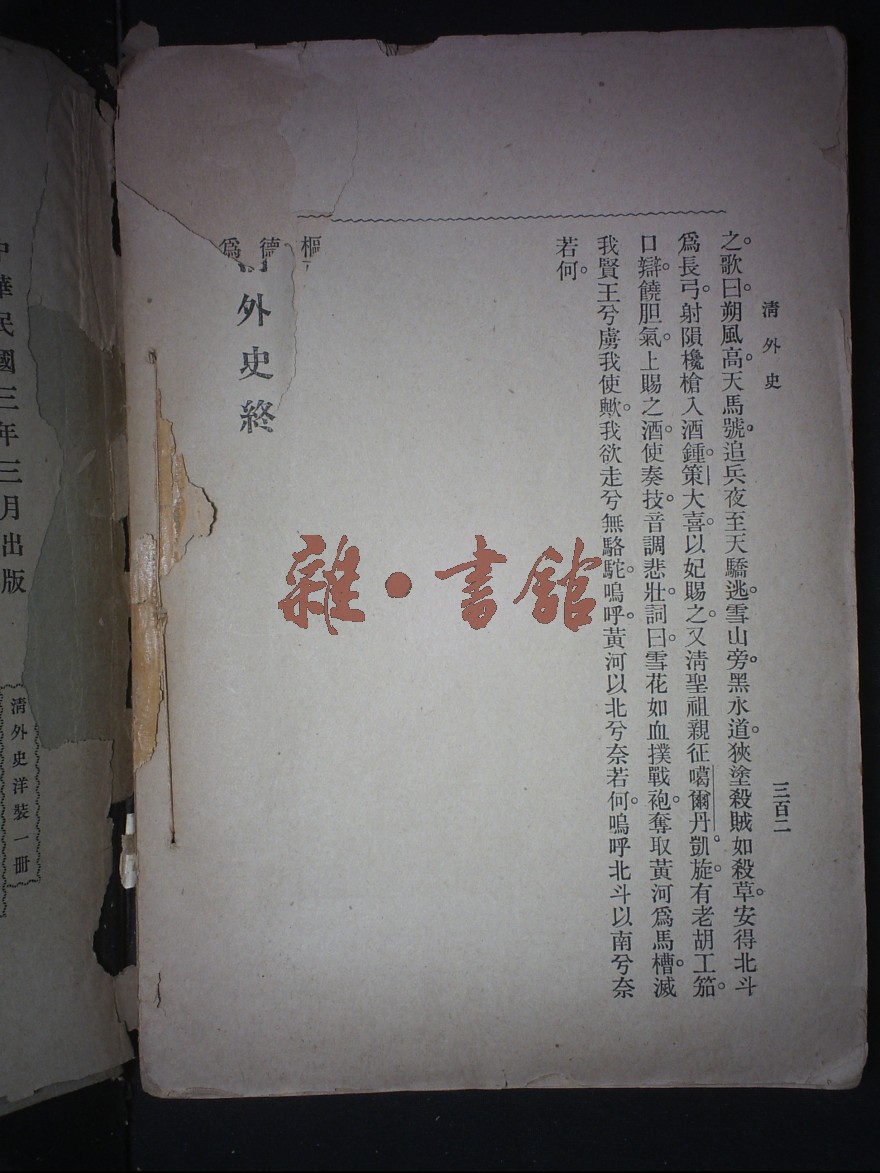 清外史
三百二
之。歌曰。朔風高。天馬號。追兵夜至天驕逃。雪山旁。黑水道。狹塗殺賊如殺草。安得北斗
為長弓。射隕欃槍入酒鍾。策大喜。以妃賜之。又清聖祖親征噶爾丹。凱旋。有老胡工笳。
口辯。饒胆氣。上賜之酒。使奏技。音調悲壯。詞曰。雪花如血撲戰袍。奪取黃河為馬槽。滅
我賢王兮虜我使歟。我欲走兮無駱駝。嗚呼。黃河以北兮奈若何。嗚呼北斗以南兮奈
若何。
樞
德
為
外史終
雜·書館
中華民國三年三月出版
清外史洋裝一冊